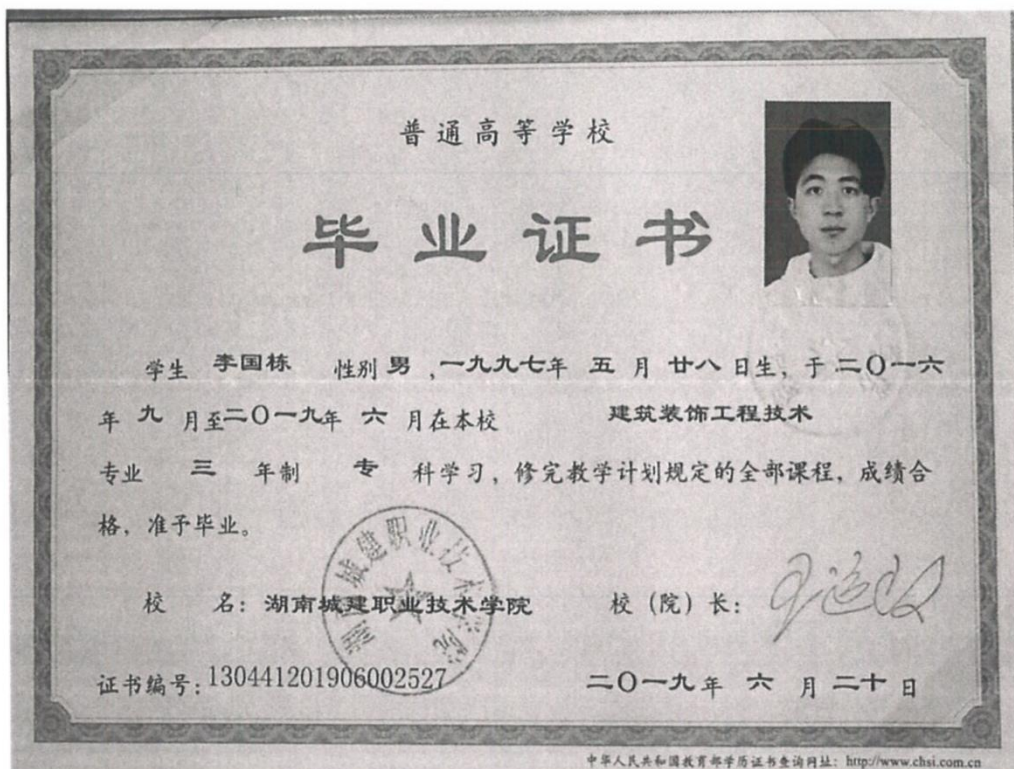 普通高等学校
毕业证书
学生 李国栋 性别 男 ,一九九七年 五 月 廿八 日生, 于 二〇一六
年 九 月至二〇一九年 六 月在本校 建筑装饰工程技术
专业 三 年制 专 科学习, 修完教学计划规定的全部课程, 成绩合
格, 准予毕业。
湖南城建职业技术学院
校 名: 湖南城建职业技术学院 校（院）长:
证书编号: 130441201906002527 二〇一九年 六 月 二十 日
中华人民共和国教育部学历证书查询网址: http://www.chsi.com.cn